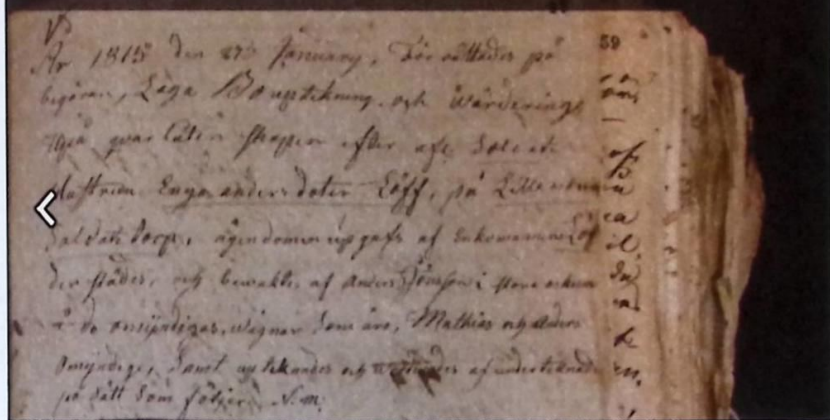 År 1815 den 27 January, förrättades på
begäran, Laga Bouptekning och Wärderings
på qvarlåtenskappen efter afl. Soldat
Hustrun Enga andersdoter Löff, på Lilla
Soldats torp, ägendomen upgafs af Enkomannen Löf
der städes, och bewaktes af Anders Jönson i stora
å de omyndigas wägnar som äro, Mathias och anders
Omyndige, Samt upteknades och af underteknade
på sätt Som följer N:m:
59